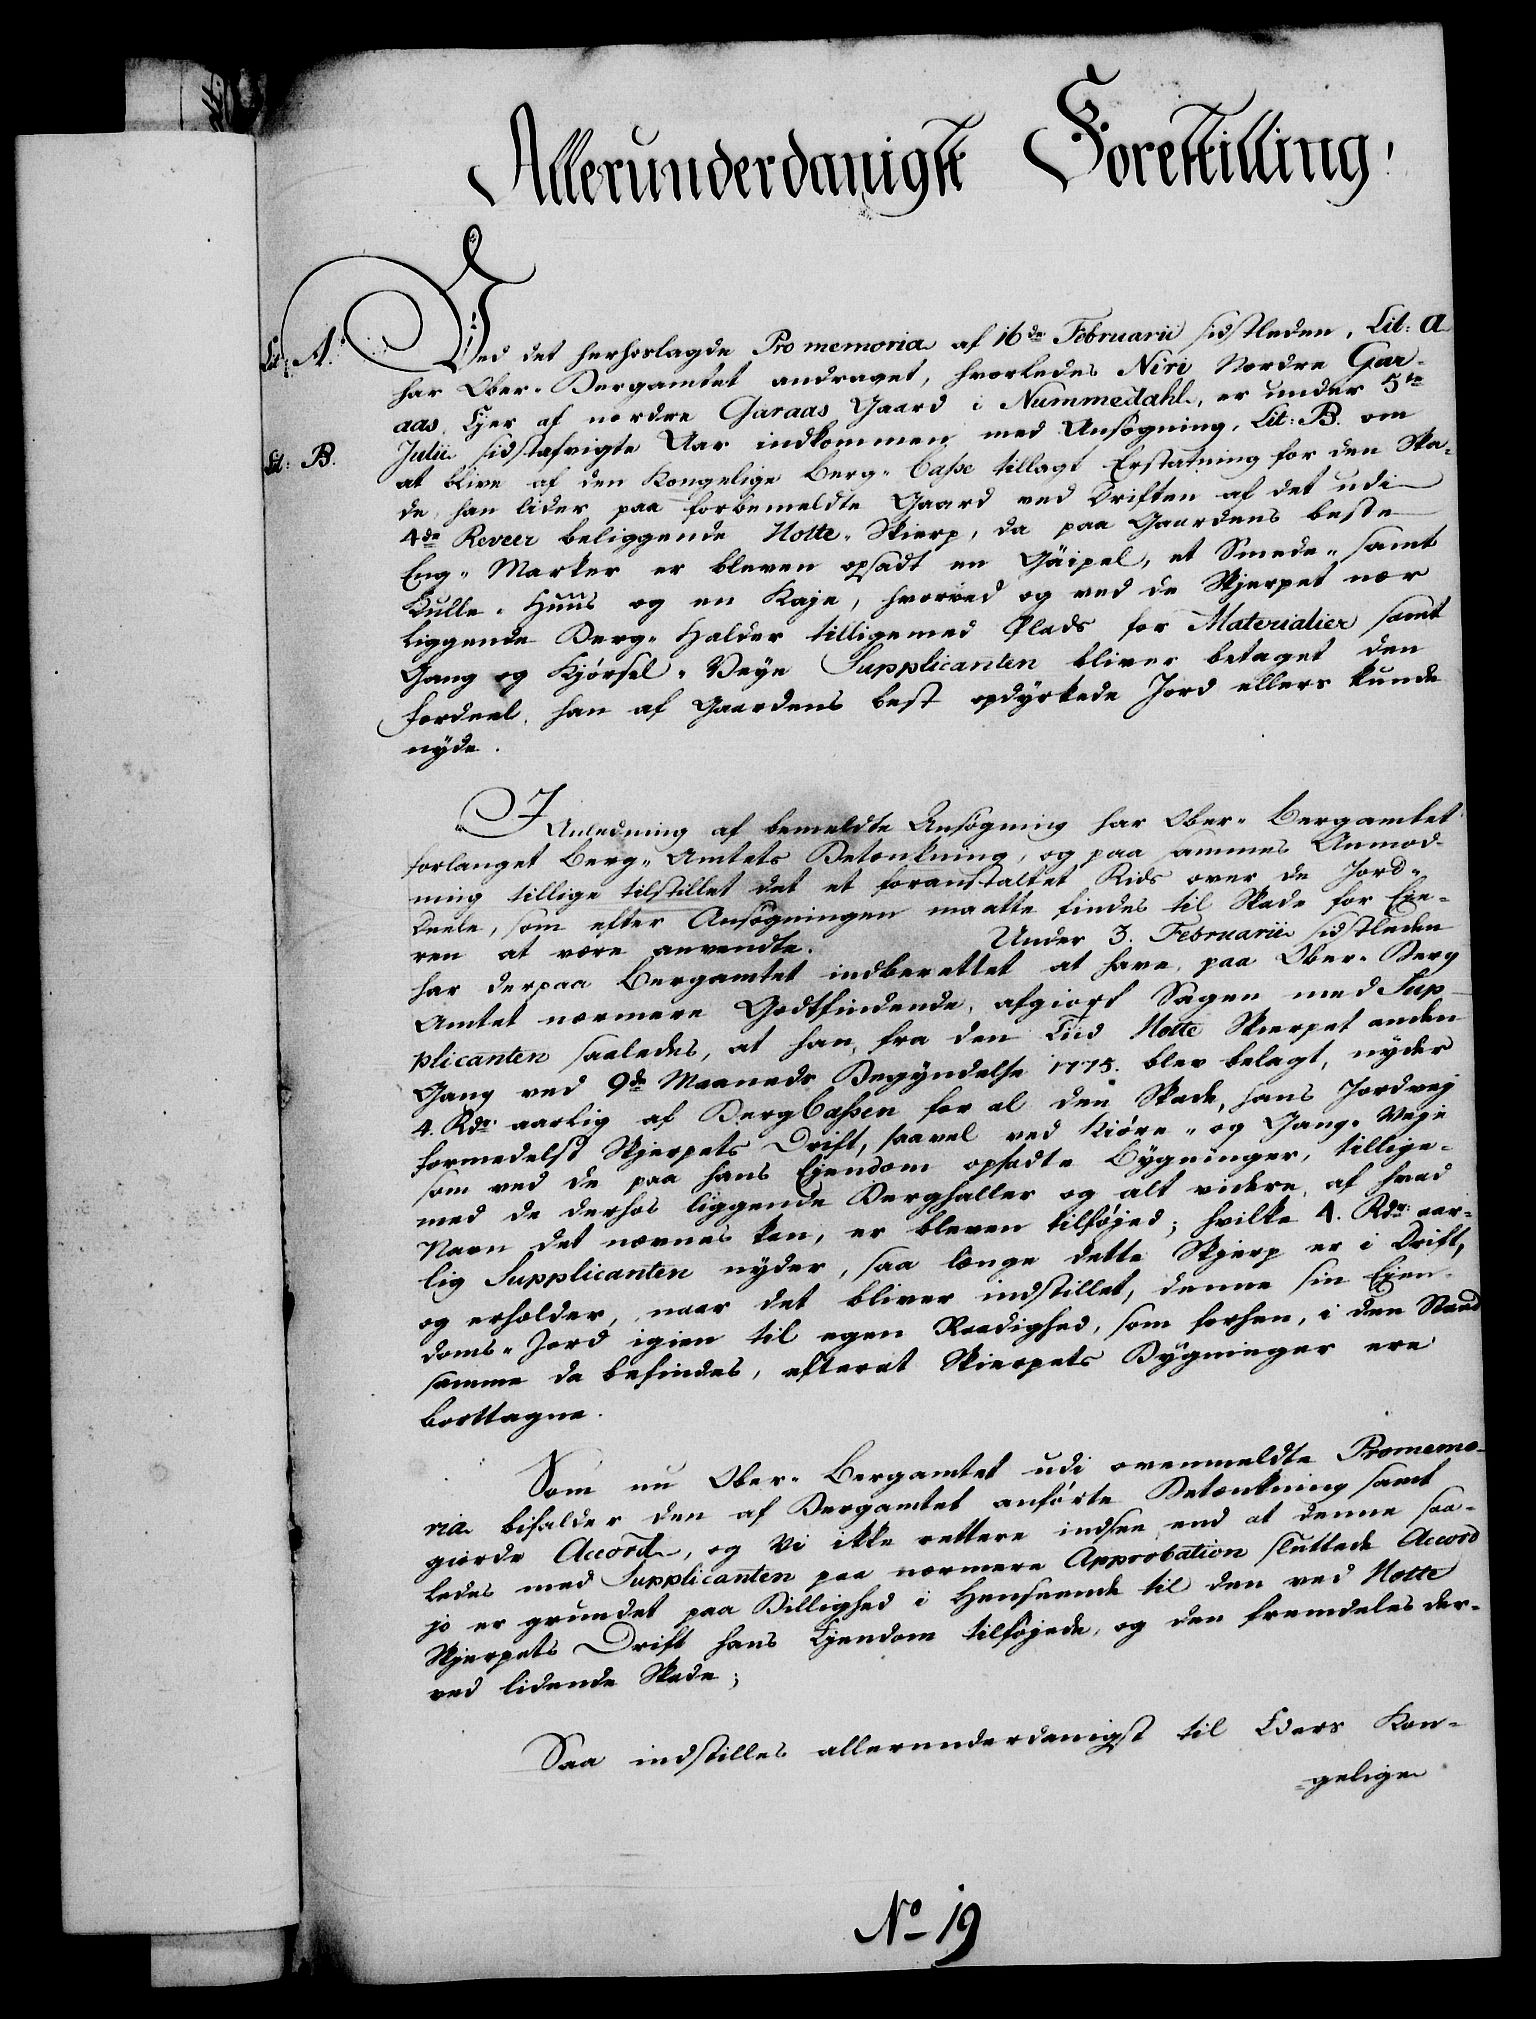 Allerunderdanigst Forestilling!
Lit: A.
Ved det herhoslagde Promemoria af 16de Februarii sidstleden, Lit: A
har Ober-Bergamtet andraget, hvorledes Niri Nordre Gar-
aas, Ejer af nordre Garaas Gaard i Nummedahl, er under 5te
Lit: B.
Julii sidstafvigte Aar indkommen med Ansøgning, Lit: B. om
at blive af den Kongelige Berg-Casse tillagt Erstatning for den Ska-
de, han lider paa forbemeldte Gaard ved Driften af det udi
4de Reveer beliggende Notte-Skierp, da paa Gaardens beste
Eng-Marker er bleven opsadt en Gäipel, et Smede- samt
Kulle-Huus og en Kaje, hvorved og ved de Skjerpet nær
liggende Berg-Halder tilligemed Plads for Materialier samt
Gang og Kjørsel-Veye Supplicanten bliver betaget den
Fordeel, han af Gaardens best opdyrkede Jord ellers kunde
nyde.
I Anledning af bemeldte Ansøgning har Ober-Bergamtet
forlanget Berg-Amtets Betænkning, og paa sammes Anmod-
ning tillige tilstillet det et foranstaltet Rids over de Jord-
Deele, som efter Ansøgningen maatte findes til Skade for Eje-
ren at være anvendte. Under 3. Februarii sidstleden
har derpaa Bergamtet indberettet at have, paa Ober-Berg
Amtet nærmere Godtfindende, afgiort Sagen med Sup-
plicanten saaledes, at han, fra den Tiid Notte Skierpet anden
Gang ved 9de Maaneds Begyndelse 1775. blev belagt, nyder
4. Rdr. aarlig af BergCassen for al den Skade, hans Jordvej
formedelst Skjerpets Drift, saavel ved Kiøre- og Gang-Veje
som ved de paa hans Ejendom opsadte Bygninger, tillige-
med de derhos liggende Berghaller og alt videre, af hvad
Navn det nævnes kan, er bleven tilføjed; hvilke 4. Rdr. aar-
lig Supplicanten nyder, saa længe dette Skjerp er i Drift,
og erholder, naar det bliver indstillet, denne sin Ejen-
doms-Jord igien til egen Raadighed, som forhen, i den Stand
samme da befindes, efterat Skierpets Bygninger ere
borttagne.
Som nu Ober-Bergamtet udi ovenmeldte Promemo-
ria bifalder den af Bergamtet anførte Betænkning samt
giorde Accord, og Vi ikke rettere indsee end at denne saa-
ledes med Supplicanten paa nærmere Approbation sluttede Accord
jo er grundet paa Billighed i Henseende til den ved Notte
Skjerpets Drift hans Ejendom tilføjede, og den fremdeles der-
ved lidende Skade;
Saa indstilles allerunderdanigst til Eders Kon-
gelige
No 19